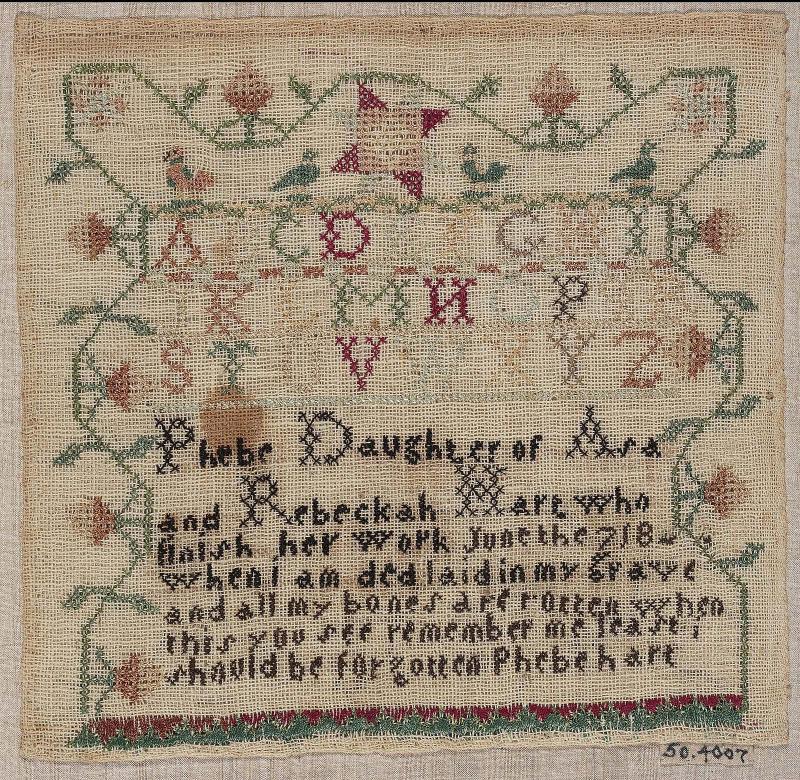 A C D G H I
K M N O P
S T V W X Y Z
Phebe Daughter of Asa
and Rebeckah Hart who
finish her work June the 7 18
when i am ded laid in my Grave
and all my bones are rotten when
this you see remember me least i
should be forgotten Phebe hart
50.4007